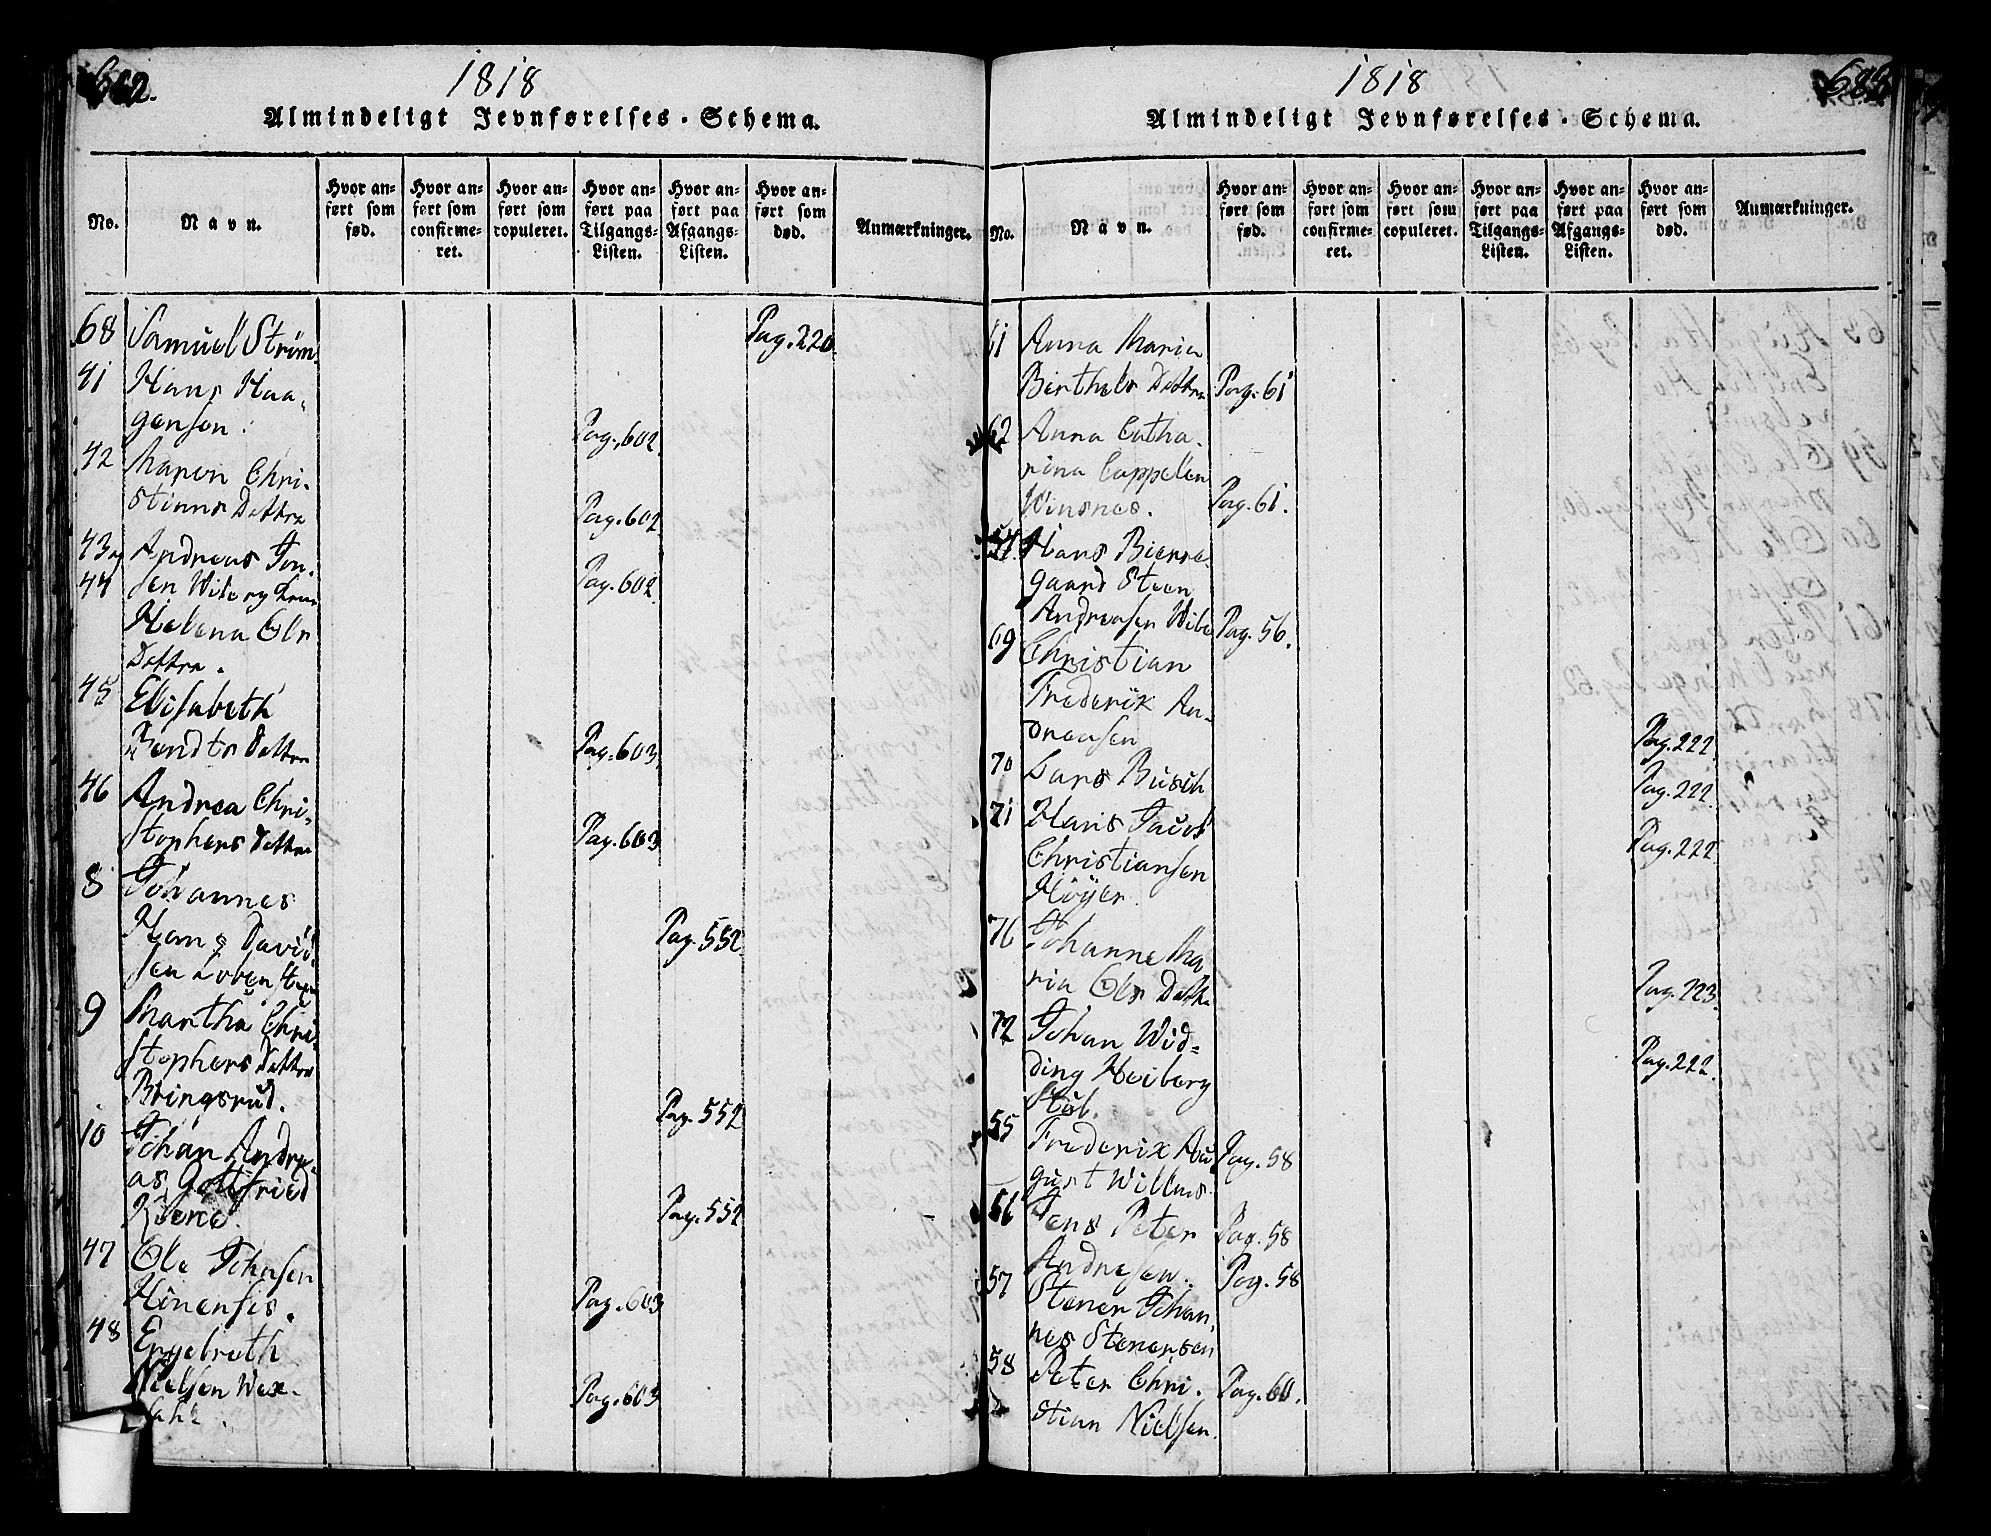 1818
Almindeligt Jevnførelses-Schema.
No.
Navn.
Hvor anført som fød.
Hvor anført som confirmeret.
Hvor anført som copuleret.
Hvor anført paa Tilgangs-Listen.
Hvor anført paa Afgangs-Listen.
Hvor anført som død.
Anmærkninger.
68 Samuel Strøm Pag. 220
41 Hans Haa-
gensen. Pag. 602
42 Maren Chri-
stians Dattra Pag. 602
43 og Andreas Jon-
44 sen Wibe og Pag. 602
Helena Ols
Dattra.
45 Elisabeth
Bendts Dattra Pag. 603
46 Andrea Chri-
stophers Dattra Pag. 603
8 Johannes
Hans David- Pag. 552
sen
9 Martha Chri-
stophers Dattra
Bringsrud. Pag. 552
10 Johan Andre-
as Gottfried
Pag. 552
47 Ole Johnsen
Pag. 603
48 Engebreth
Nielsen
Pag. 603
1818
Almindeligt Jevnførelses-Schema.
No.
Navn.
Hvor anført som fød.
Hvor anført som confirmeret.
Hvor anført som copuleret.
Hvor anført paa Tilgangs-Listen.
Hvor anført paa Afgangs-Listen.
Hvor anført som død.
Anmærkninger.
61 Anna Maria
Berthels Dattra Pag. 61
62 Anna Catha-
rina Cappelen
Winsnes. Pag. 61.
54 Hans Bierre-
gaard Steen
Andreasen Wibe Pag. 56.
69 Christian
Frederik An-
dreasen Pag. 222.
70 Lars Busch Pag. 222.
71 Hans Jacob
Christiansen Pag. 222
Höÿer.
76 Johanne Ma
ria Ols Dattra Pag. 223.
72 Johan Wid-
ding Heiberg Pag. 222.
Stub.
55 Frederik Au
gust Willums Pag. 58
56 Jens Peter Pag. 58
Andresen.
57 Stener Johan- Pag. 58
nes Stenersen
58 Peter Chri-
stian Nielsen. Pag. 60.